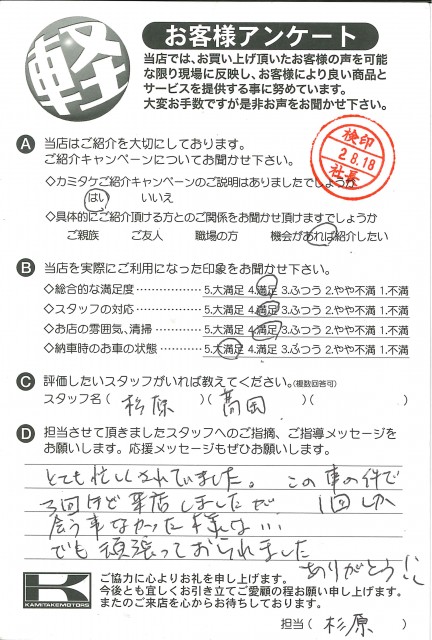 軽
お客様アンケート
当店では、お買い上げ頂いたお客様の声を可能
な限り現場に反映し、お客様により良い商品と
サービスを提供する事に努めています。
大変お手数ですが是非お声をお聞かせ下さい。
検印
28.18
社長
A 当店はご紹介を大切にしております。
ご紹介キャンペーンについてお聞かせ下さい。
◇カミタケご紹介キャンペーンのご説明はありましたでしょうか
はい いいえ
◇具体的にご紹介頂ける方とのご関係をお聞かせ頂けますでしょうか
ご親族 ご友人 職場の方 機会があれば紹介したい
B 当店を実際にご利用になった印象をお聞かせ下さい。
◇総合的な満足度 5.大満足 4.満足 3.ふつう 2.やや不満 1.不満
◇スタッフの対応 5.大満足 4.満足 3.ふつう 2.やや不満 1.不満
◇お店の雰囲気、清掃 5.大満足 4.満足 3.ふつう 2.やや不満 1.不満
◇納車時のお車の状態 5.大満足 4.満足 3.ふつう 2.やや不満 1.不満
C 評価したいスタッフがいれば教えてください。(複数回答可)
スタッフ名( 杉原 )( 高田 )( )
D 担当させて頂きましたスタッフへのご指摘、ご指導メッセージを
お願いします。応援メッセージもぜひお願いします。
とても忙しくされていました。この車の件で
3回ほど来店しましたが 1回しか
会う事なかった様な…
でも頑張っておられました
ありがとう!!
K
KAMITAKEMOTORS
ご協力に心よりお礼を申し上げます。
今後とも宜しくお引き立てご愛顧の程お願い申し上げます。
またのご来店を心からお待ちしております。
担当( 杉原 )